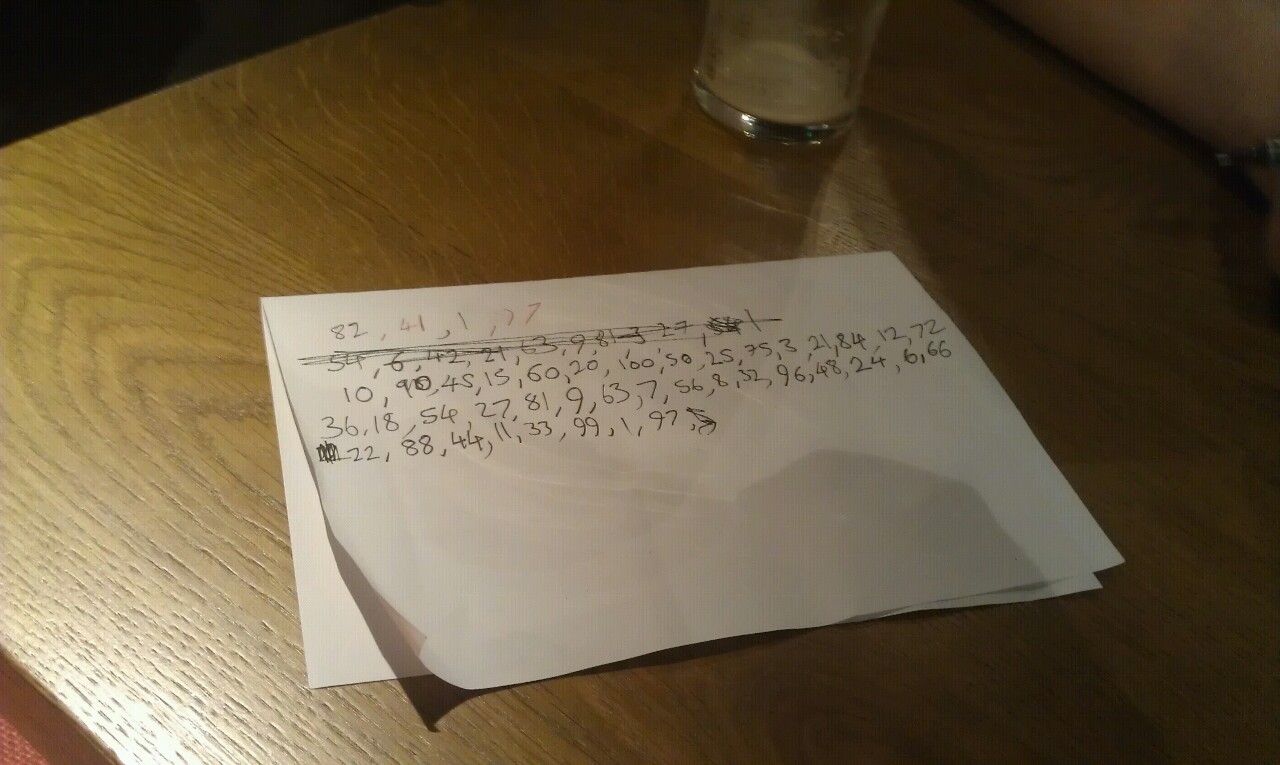 82, 41, 1, 77
54, 6, 42, 21, 63, 9, 81 3 27, 1
10, 90, 45, 15, 60, 20, 100, 50, 25, 75, 3, 21, 84, 12, 72
36, 18, 54, 27, 81, 9, 63, 7, 56, 8, 32, 96, 48, 24, 6, 66
22, 88, 44, 11, 33, 99, 1, 97,